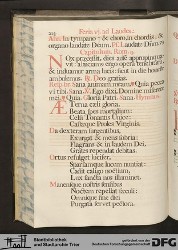 Feria vi. ad Laudes.
Alia. in tympano & choro, in chordis, &
organo laudate Deum. Ps. Laudate Dñm.
Capitulum. Rom. 13.
Nox præcessit, dies autẽ appropinqua-
vit. abjiciamus ergo opera tenebrarum,
& induamur arma lucis: sicut in die honeste
ambulemus. ℟. Deo gratias.
Gloria Patri.
Æterna cæli gloria,
Beata spes mortalium,
Celsi Tonantis Unice,
Castæque Proles Virginis.
Da dexteram surgentibus,
Exurgat & mens sobria:
Flagrans & in laudem Dei,
Grates rependat debitas.
Ortus refulget lucifer,
Sparsamque lucem nuntiat:
Cadit caligo noctium,
Lux sancta nos illuminet.
Manensque nostris sensibus
Noctem repellat sæculi:
Omnique fine diei
Purgata servet pectora.
Stadtbibliothek
und Stadtarchiv Trier
gefördert von der
DFG